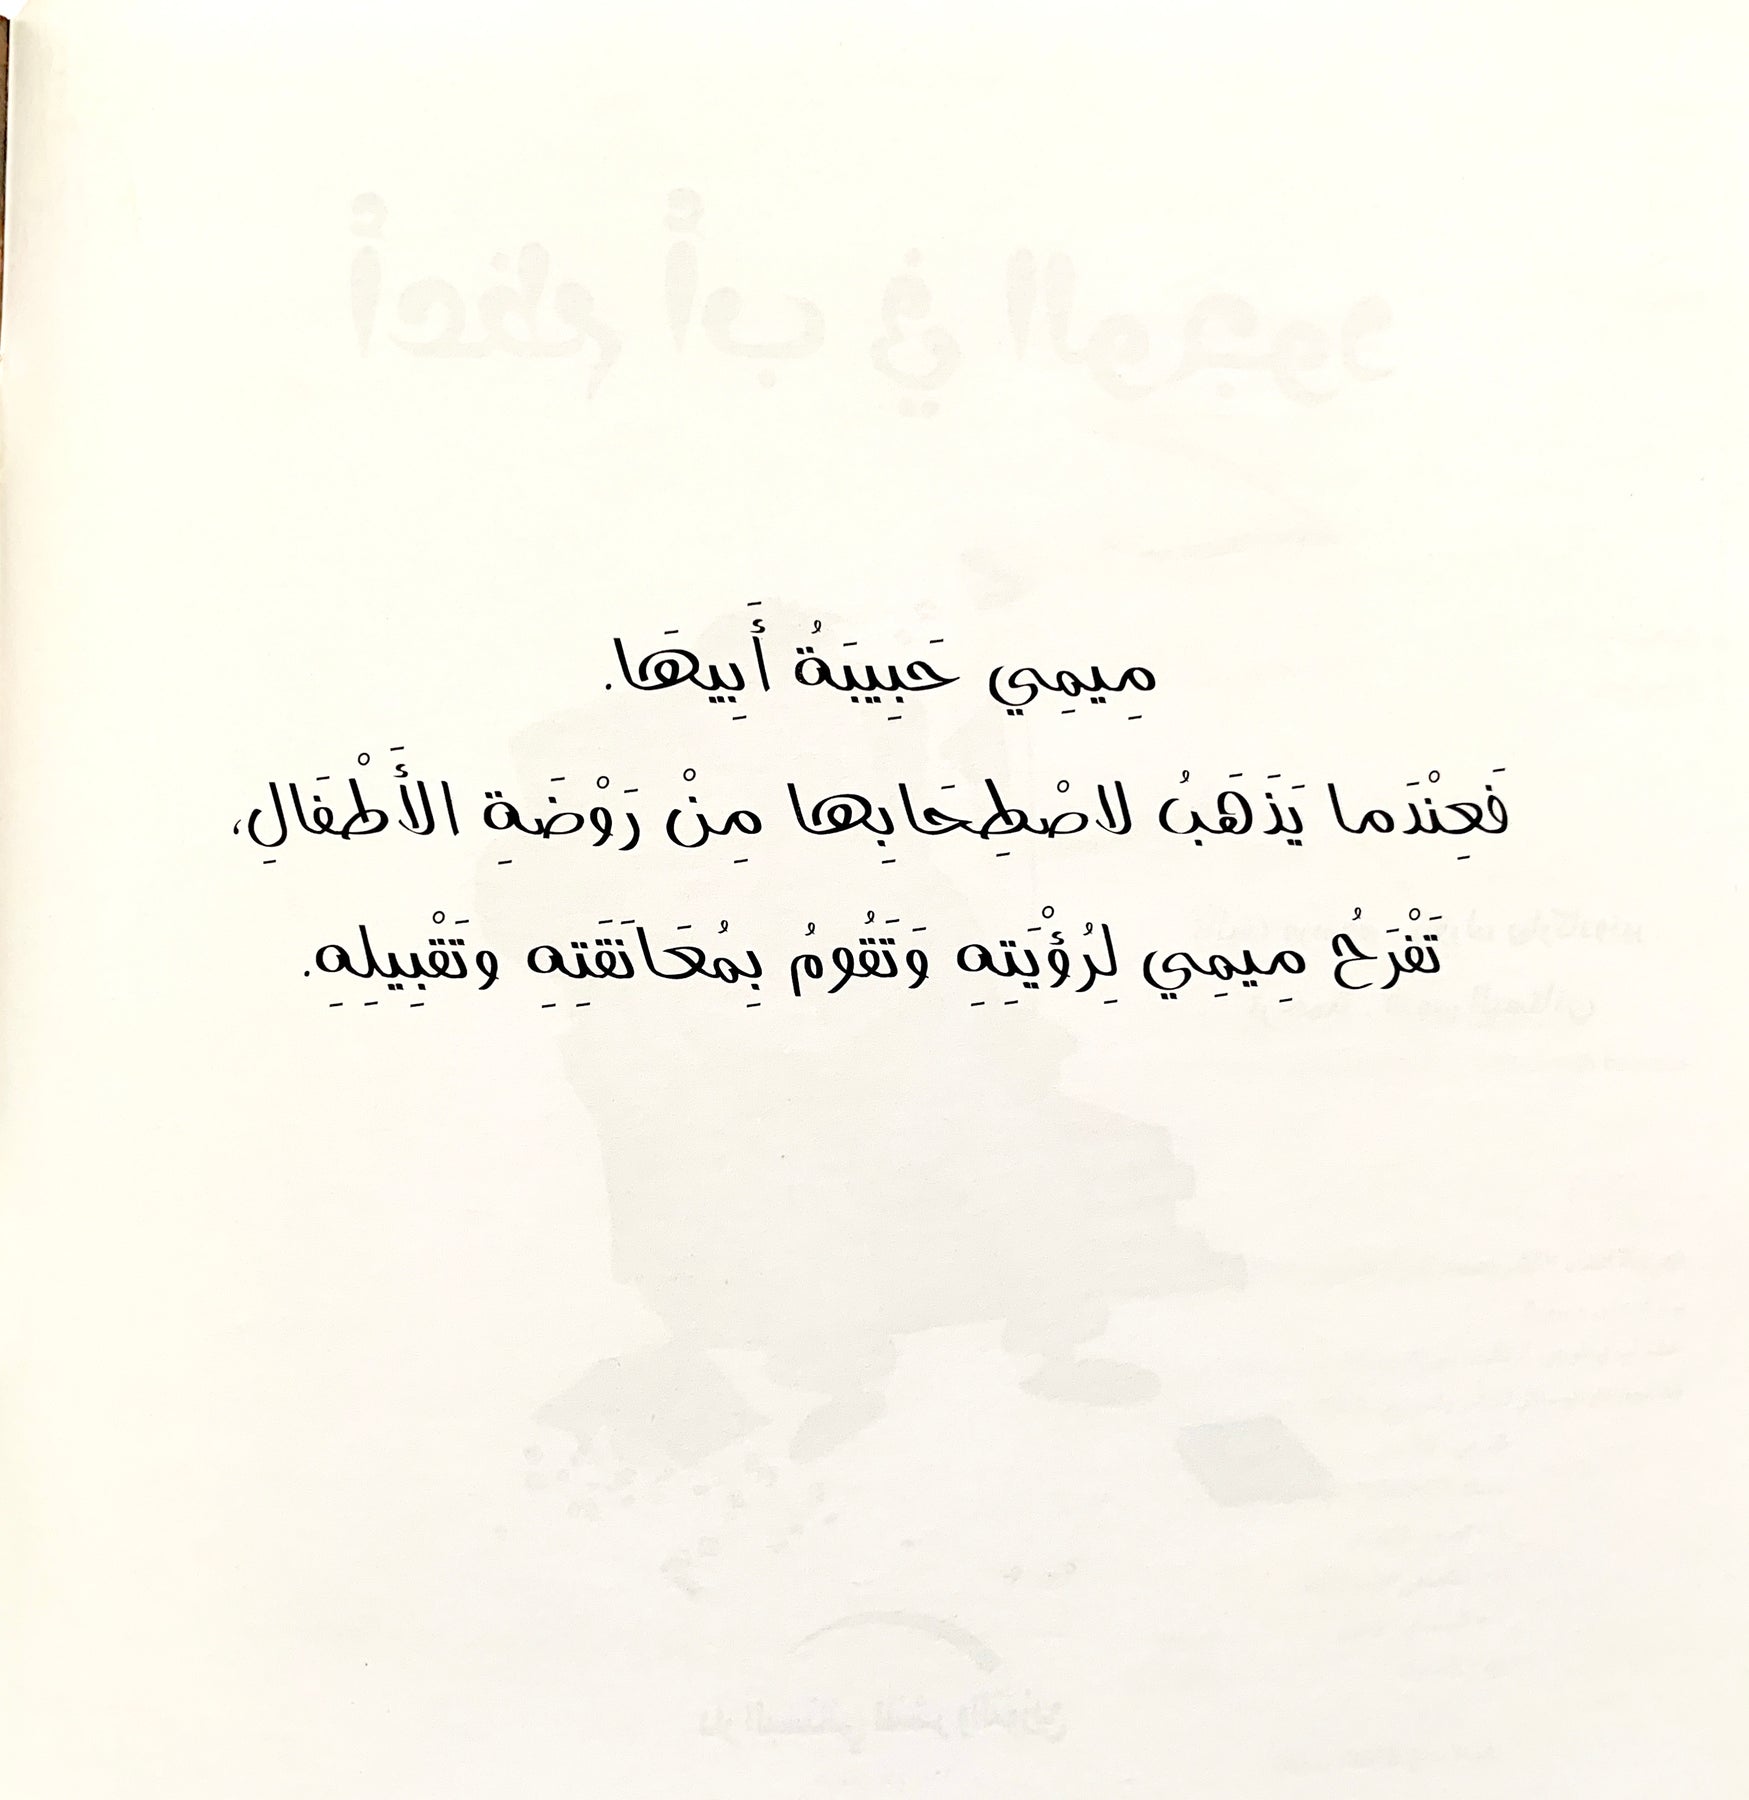 مِيمِي حَبِيبَةُ أَبِيهَا.
فَعِنْدَما يَذَهَبُ لاصْطِحَابِها مِنْ رَوْضَةِ الأَطْفَالِ،
تَفْرَحُ مِيمِي لِرُؤْيَتِهِ وَتَقُومُ بِمُعَانَقَتِهِ وتَقْبِيلِهِ.